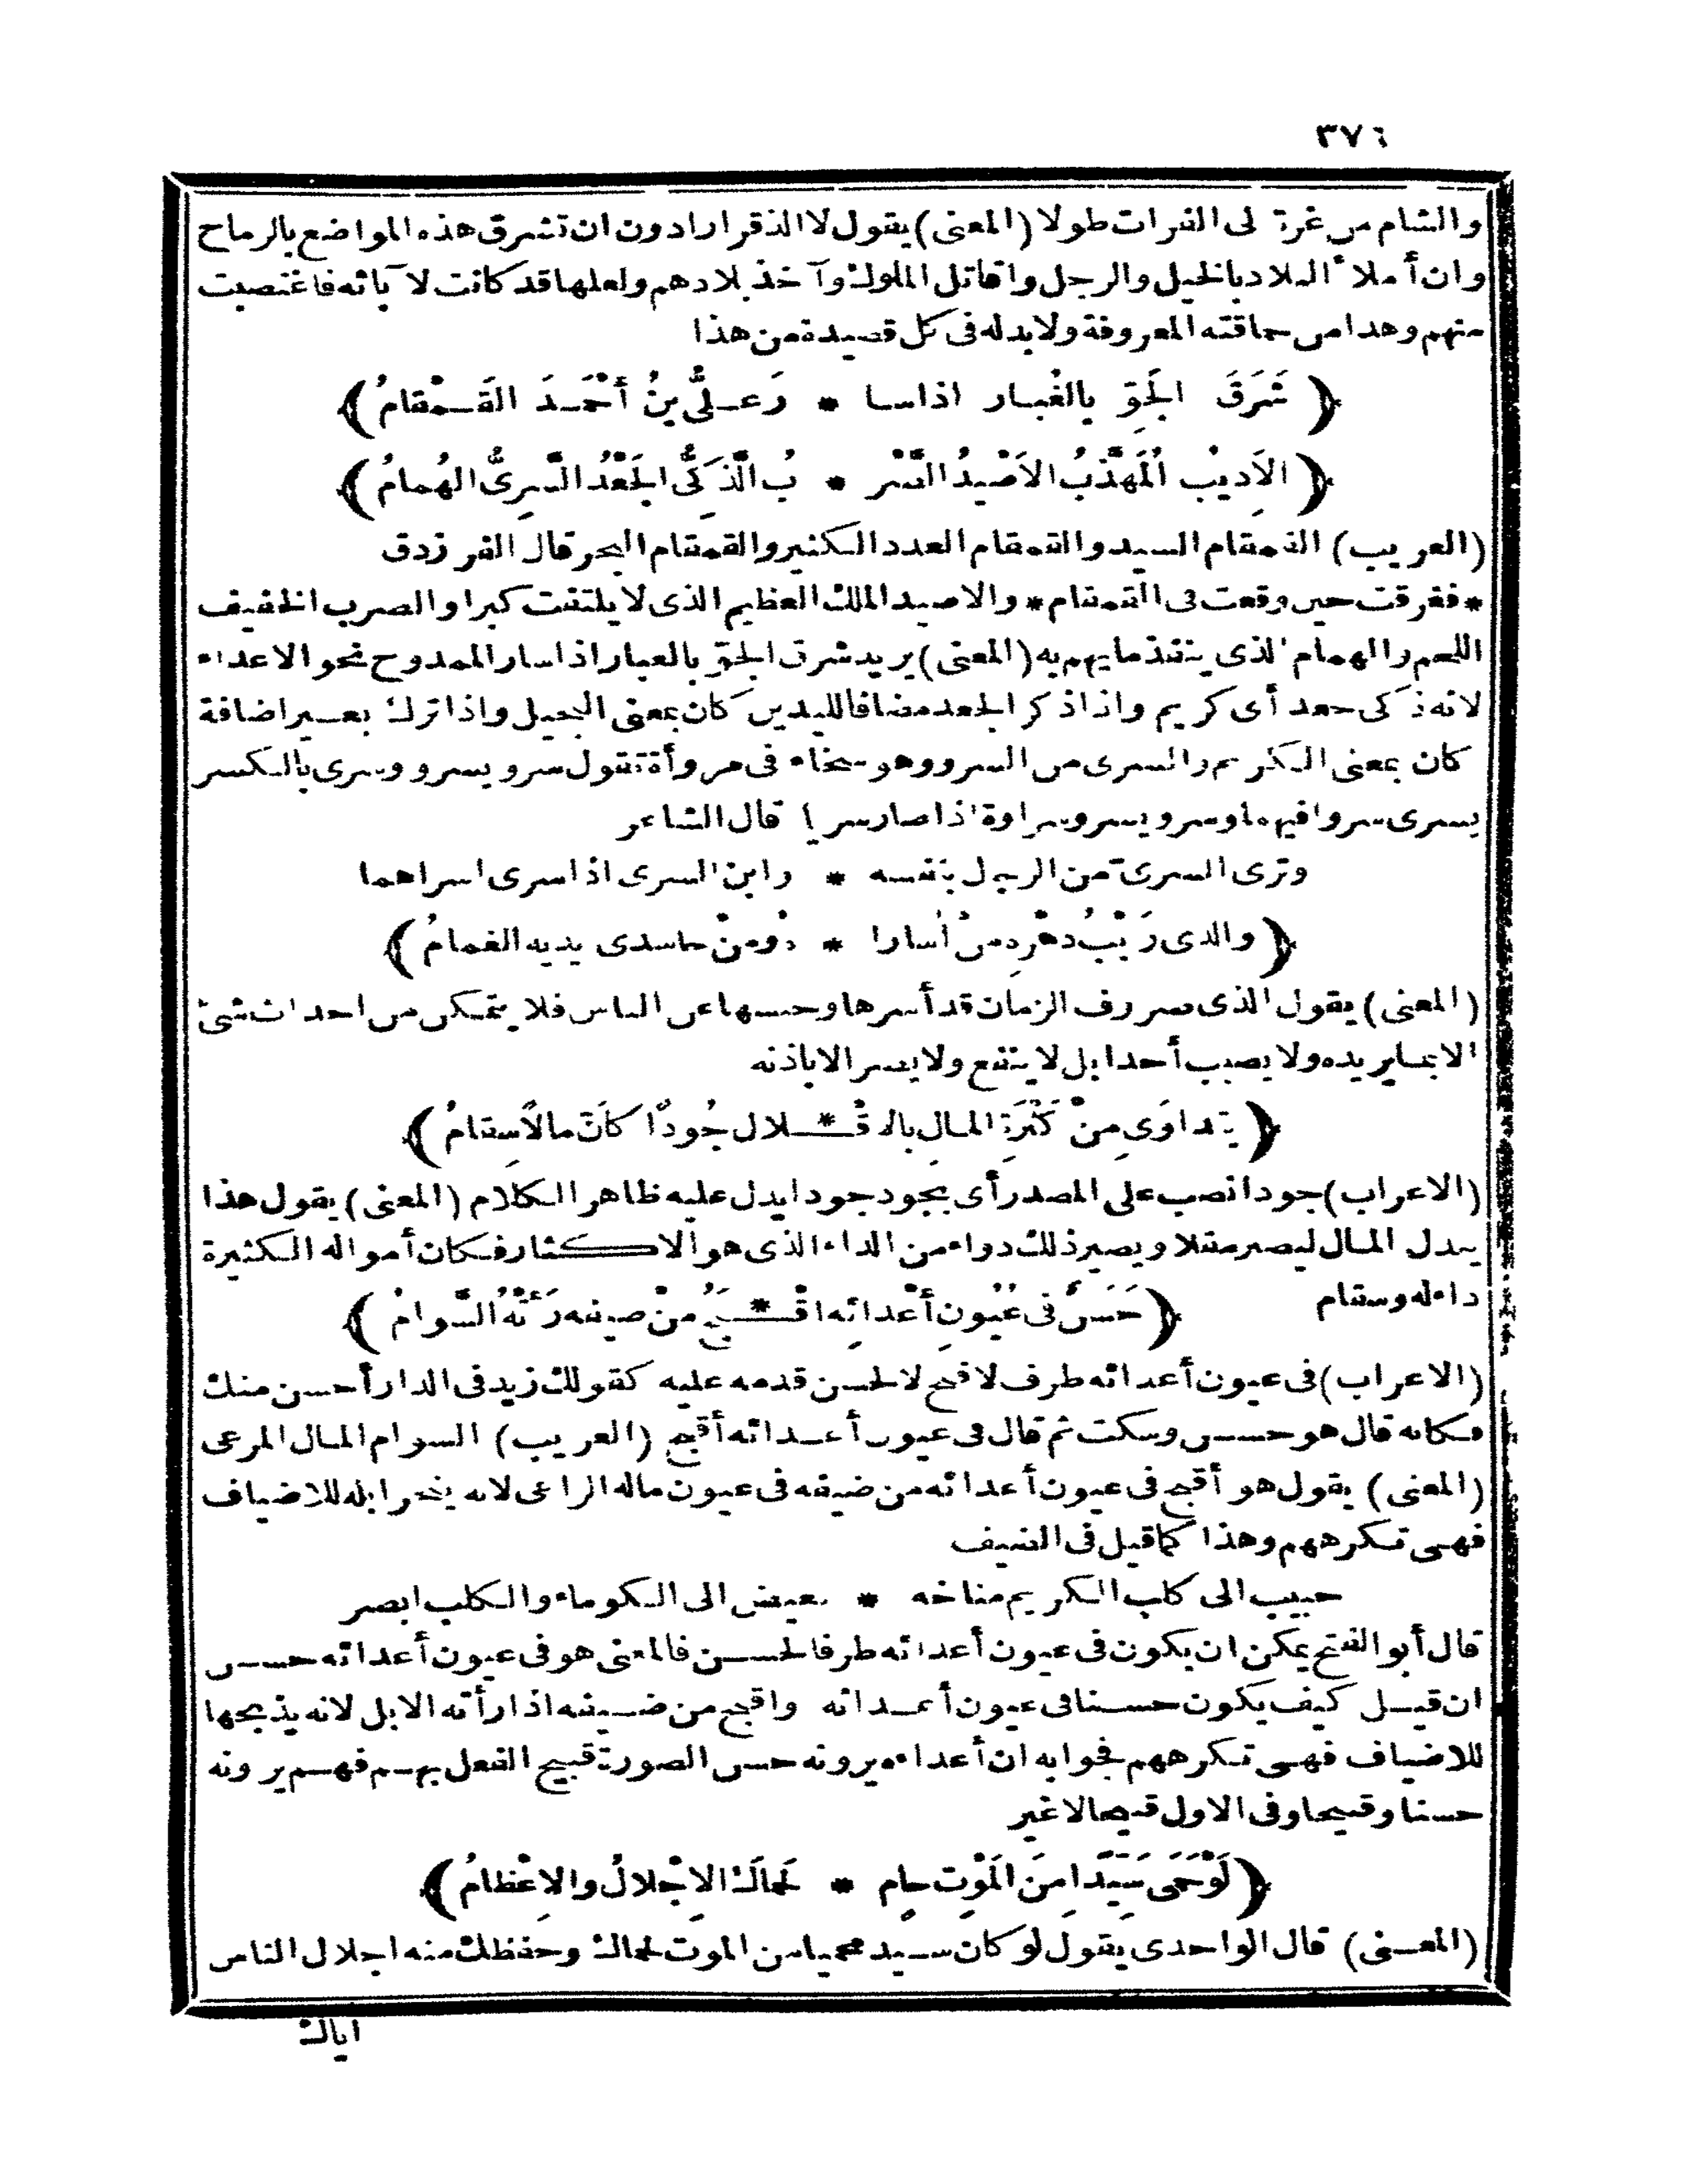 ٣٧٦
والشام من غزة الى الفرات طولا (المعنى) يقول لا الذقرارا دون ان تشرق هذه المواضع بالرماح
وان أملا البلاد بالخيل والرجل واقاتل الملوك وآخذ بلادهم ولعلها قد كانت لآبائه فاغتصبت
منهم وهدا من حماقته المعروفة ولا بدله فى كل قصيدة من هذا
﴿ شَرَقَ الجَوِّ بالغُبار اذا سا * رَ عـلىُّ بنُ أحْمَـدَ القَـمْقامُ ﴾
﴿ الأَديْبُ المُهَذَّبُ الأَصْيدُ الضَّرْ * بُ الَّذكىُّ الجَعْدُ السَّرِىُّ الهُمامُ ﴾
(الغريب) القمقام السيد والقمقام العدد الكثير والقمقام البحر قال الفرزدق
* فغرقت حين وقعت فى القمقام * والاصيد الملك العظيم الذى لا يلتفت كبرا والضرب الخفيف
اللحم والهمام الذى ينفذ ما يهم به (المعنى) يريد شرق الجو بالغبار اذا سار الممدوح نحو الاعداء
لانه ذكى جعد أى كريم واذا ذكر الجعد مضافا لليدين كان بمعنى البخيل واذا ترك بغير اضافة
كان بمعنى الكريم والسرى من السرو وهو سخاء فى مروأة تقول سرو يسرو وسرى بالكسر
يسرى سروا فيهما وسرو يسرو سراوة اذا صار سريا قال الشاعر
وترى السرى من الرجل بنفسه * وابن السرى اذا سرى اسراهما
﴿ والذى رَيْبُ دهْرِه منْ أُسارا * هُ ومنْ حاسدى يديه الغمامُ ﴾
(المعنى) يقول الذى صروف الزمان قد أسرها وحبسها عن الناس فلا يتمكن من احداث شئ
الا بما يريده ولا يصيب أحدا بل لا ينفع ولا يضر الا باذنه
﴿ يَتداوَى مِنْ كَثْرَةِ المال بالاقْـ * ـلال جُودًا كأنَّ مالاً سقامُ ﴾
(الاعراب) جودا نصب على المصدر أى يجود جودا يدل عليه ظاهر الكلام (المعنى) يقول هذا
يبذل المال ليصير مقلا ويصير ذلك دواء من الداء الذى هو الاكـثار فكان أمواله الكثيرة
داء له وسقام
﴿ حَسَنٌ فى عُيُون أعْدائِه اقْـ * ـبَحُ منْ ضيفه رَأَتْهُ السَّوامُ ﴾
(الاعراب) فى عيون أعدائه ظرف لاقبح لا لحسن قدمه عليه كقولك زيد فى الدار أحسن منك
فكانه قال هو حسـن وسكت ثم قال فى عيون أعـدائه أقبح (الغريب) السوام المال المرعى
(المعنى) يقول هو أقبح فى عيون أعدائه من ضيفه فى عيون ماله الراعى لانه ينحر ابله للاضياف
فهى تكرههم وهذا كما قيل فى الضيف
حبيب الى كلب الكريم مناخه * بغيض الى الكوماء والكلب ابصر
قال أبو الفتح يمكن ان يكون فى عيون أعدائه ظرفا لحسـن فالمعنى هو فى عيون أعدائه حسـن
ان قيـل كيف يكون حسـنا فى عيون أعـدائه واقبح من ضـيفه اذا رأته الابل لانه يذبحها
للاضياف فهى تكرههم فجوابه ان أعداءه يرونه حسن الصورة قبيح الفعل بهـم فهـم يرونه
حسنا وقبيحا وفى الاول قبيحا لا غير
﴿ لَوْ حَمَى سَيِّدًا مِنَ المَوْتِ حامٍ * لَحَماكَ الاِجْلالُ والاِعْظامُ ﴾
(المعـنى) قال الواحدى يقول لو كان سـيد محميا من الموت لحماك وحفظك منه اجلال الناس
اياك